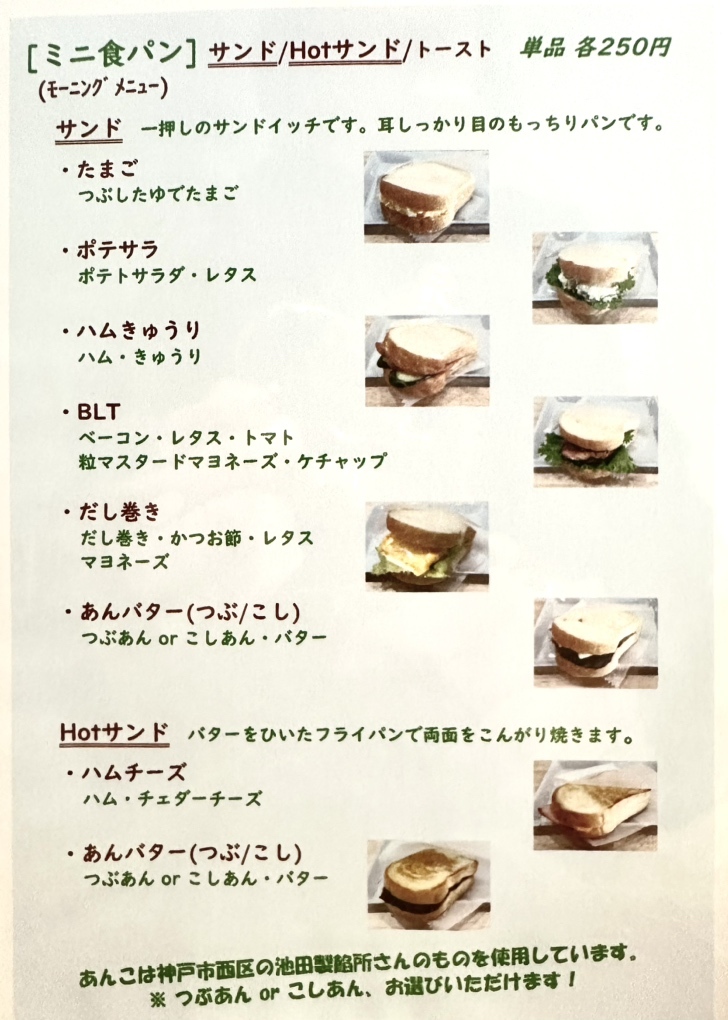 [ミニ食パン] サンド/Hotサンド/トースト 単品 各250円
(ﾓｰﾆﾝｸﾞﾒﾆｭｰ)
サンド 一押しのサンドイッチです。耳しっかり目のもっちりパンです。
・たまご
つぶしたゆでたまご
・ポテサラ
ポテトサラダ・レタス
・ハムきゅうり
ハム・きゅうり
・BLT
ベーコン・レタス・トマト
粒マスタードマヨネーズ・ケチャップ
・だし巻き
だし巻き・かつお節・レタス
マヨネーズ
・あんバター(つぶ/こし)
つぶあん or こしあん・バター
Hotサンド バターをひいたフライパンで両面をこんがり焼きます。
・ハムチーズ
ハム・チェダーチーズ
・あんバター(つぶ/こし)
つぶあん or こしあん・バター
あんこは神戸市西区の池田製餡所さんのものを使用しています。
※ つぶあん or こしあん、お選びいただけます！